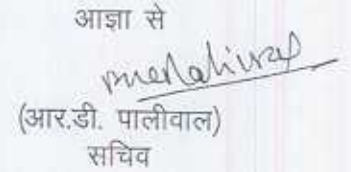 आज्ञा से
(आर.डी. पालीवाल)
सचिव